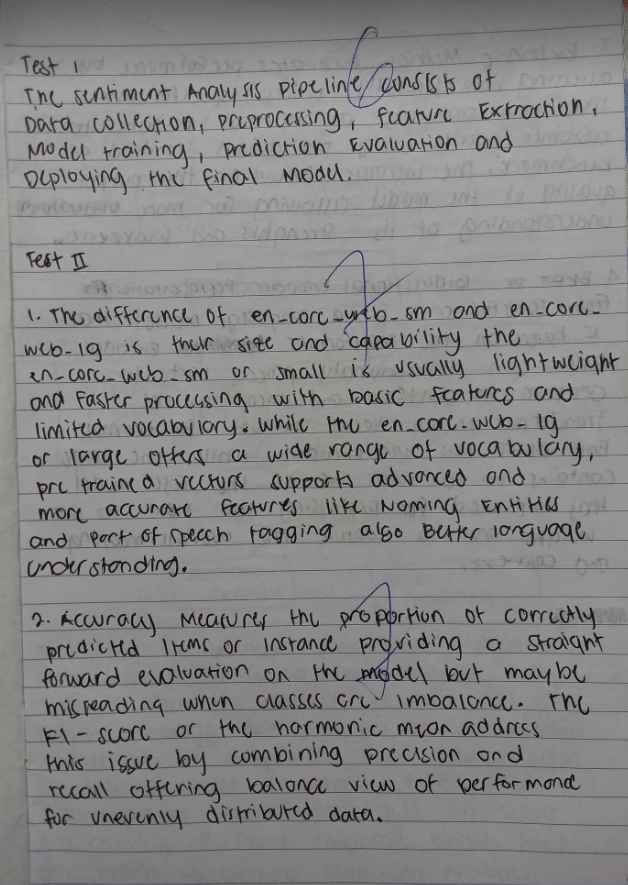 Test I
The sentiment Analysis pipeline consists of
Data collection, preprocessing, feature Extraction,
Model training, prediction Evaluation and
Deploying the final Model.
Test II
1. The difference of en_core_web_sm and en_core_
web_lg is their size and capability the
en_core_web_sm or small is usually lightweight
and faster processing with basic features and
limited vocabulary. while the en_core_web_lg
or large offers a wide range of vocabulary,
pre trained vectors supports advanced and
more accurate features like Naming Entities
and part of speech tagging also Better language
understanding.
2. Accuracy Measures the proportion of correctly
predicted Items or instance providing a straight
forward evaluation on the model but maybe
misreading when classes are imbalance. The
F1-score or the harmonic mean address
this issue by combining precision and
recall offering balance view of performance
for unevenly distributed data.